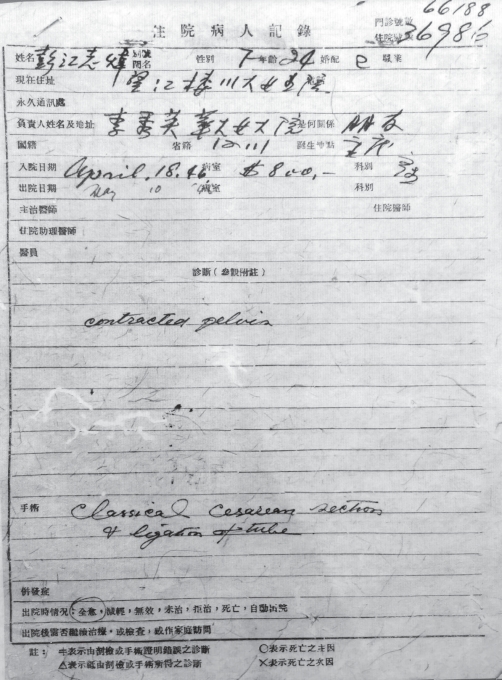 66188
住院病人記錄
門診號數
住院號數 36981
姓名 彭江志 別號 閨名 性別 年齡 24 婚配 職業
現在住址 望江樓川大女生院
永久通訊處
負責人姓名及地址 李秀英 華大女大院 是何關係 朋友
國籍 省籍 四川 誕生地點
入院日期 April, 18.46. 病室 $800,- 科別
出院日期 May 10 病室 科別
主治醫師 住院醫師
住院助理醫師
醫員
診斷(參設附註)
contracted pelvis
手術 Classical cesarean section
& ligation of tube
併發症
出院時情况:全愈,減輕,無效,未治,拒治,死亡,自動出院
出院後需否繼續治療,或檢查,或作家庭訪問
註: 卄表示由剖檢或手術證明錯誤之診斷 〇表示死亡之主因
△表示祗由剖檢或手術所得之診斷 ×表示死亡之次因